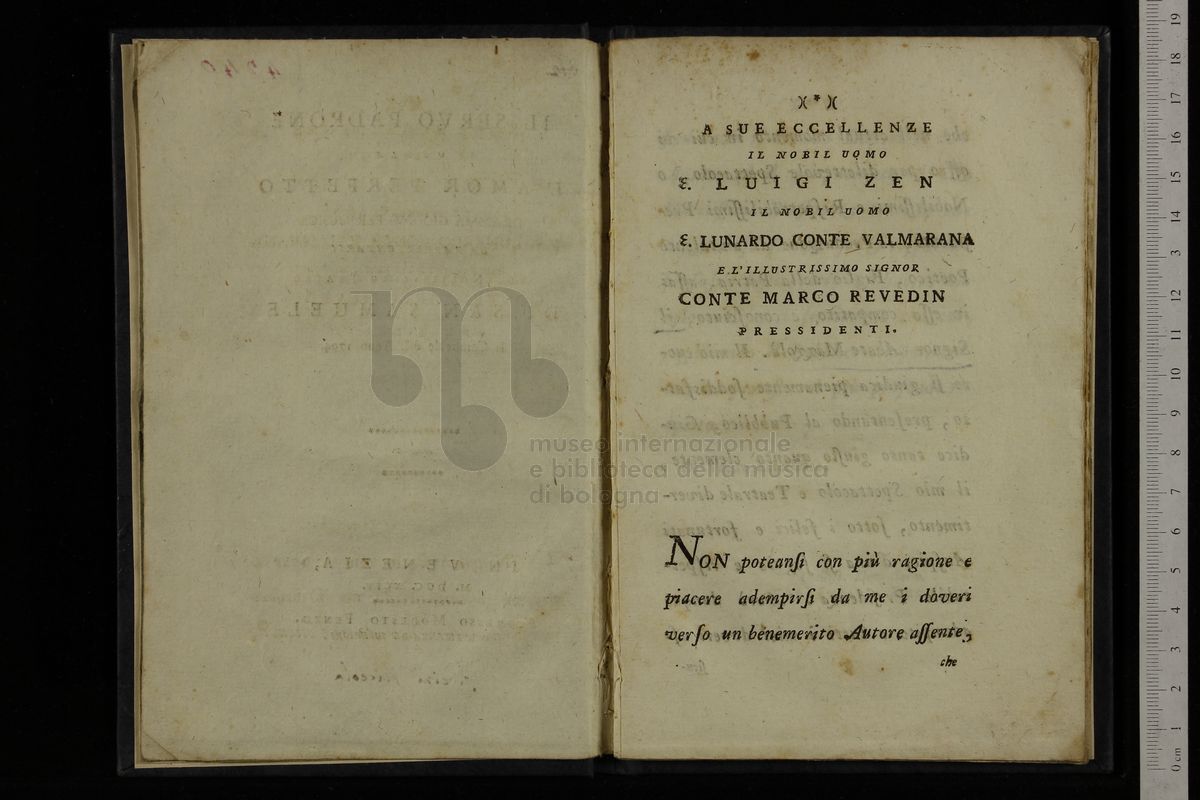 )( * )(
A SUE ECCELLENZE
IL NOBIL UOMO
E. LUIGI ZEN
IL NOBIL UOMO
E. LUNARDO CONTE VALMARANA
E L'ILLUSTRISSIMO SIGNOR
CONTE MARCO REVEDIN
PRESSIDENTI.
NON poteanſi con più ragione e
piacere adempirſi da me i doveri
verſo un benemerito Autore aſſente,
che
museo internazionale
e biblioteca della musica
di bologna
0 cm 1 2 3 4 5 6 7 8 9 10 11 12 13 14 15 16 17 18 19